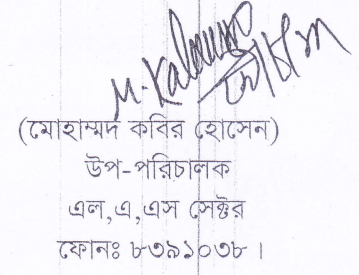 (মোহাম্মদ কবির হোসেন)
উপ-পরিচালক
এল,এ,এস সেক্টর
ফোনঃ ৮৩৯১০৩৮ ।